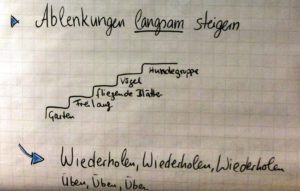 Ablenkungen langsam steigern
Hundegruppe
Vögel
fliegende Blätter
Freilauf
Garten
Wiederholen, Wiederholen, Wiederholen
Üben, Üben, Üben